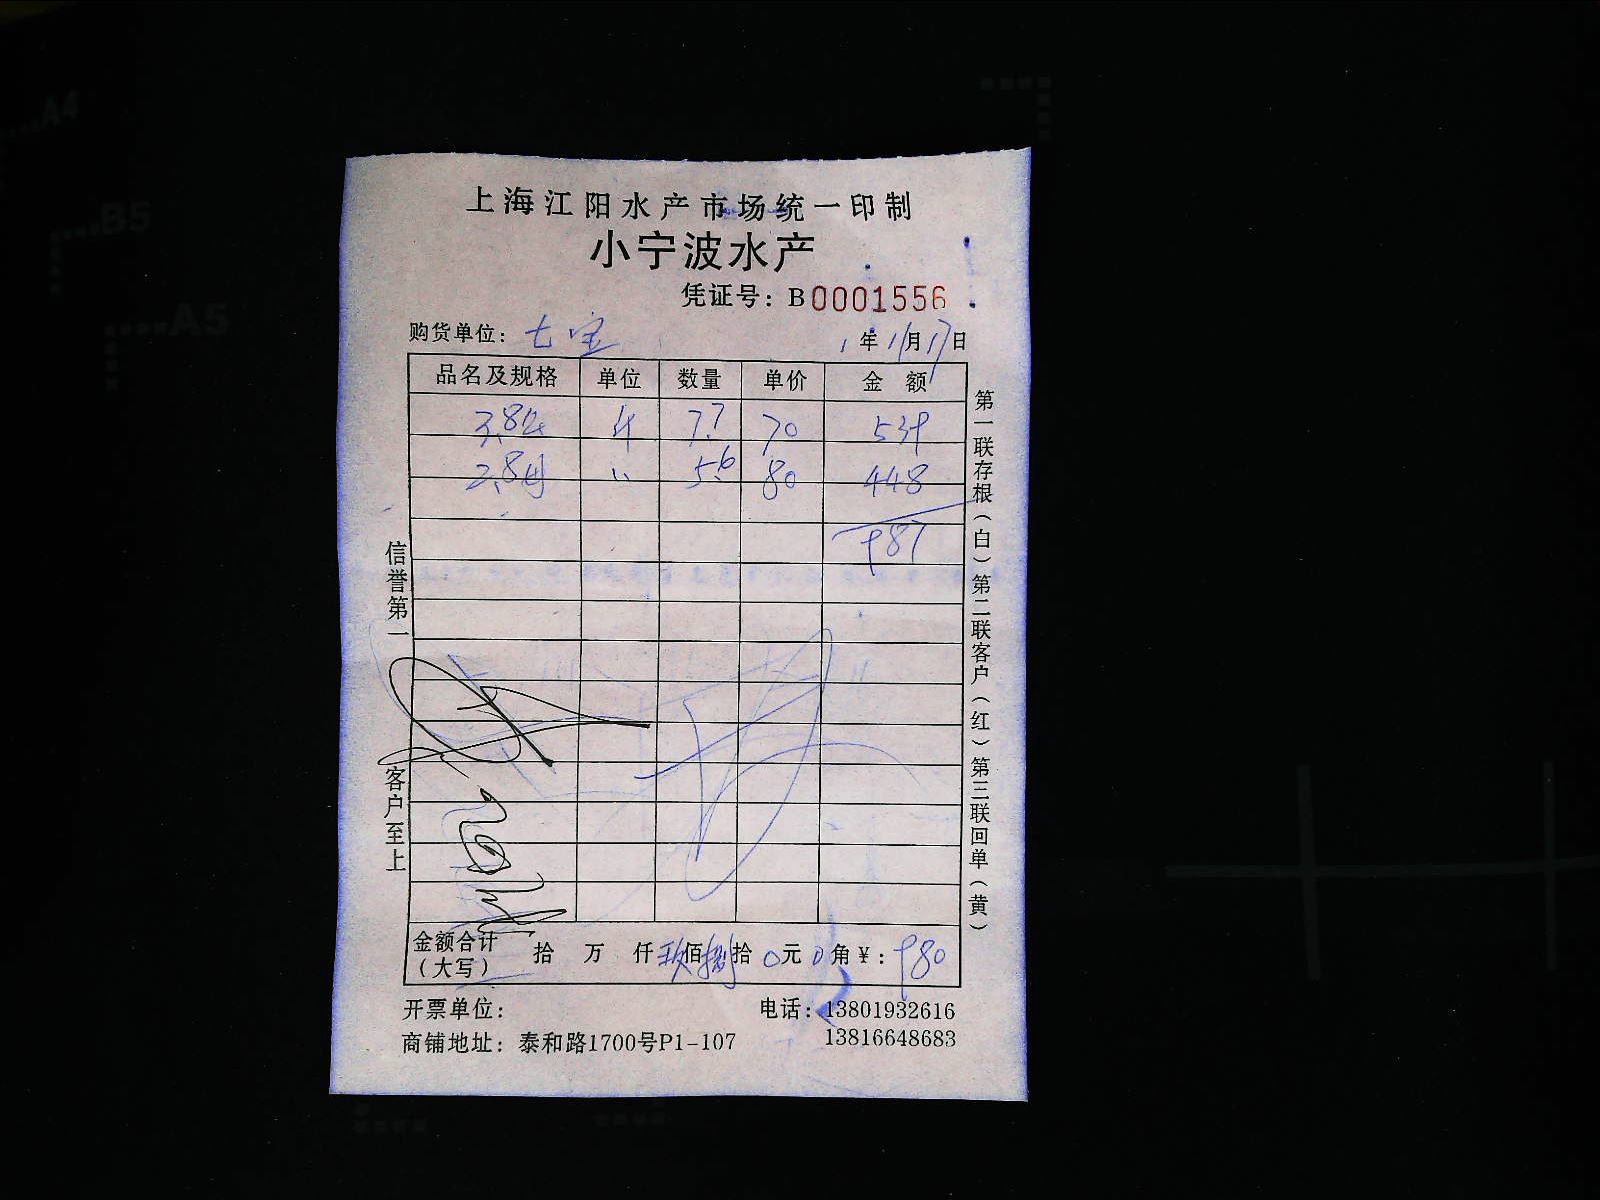 上海江阳水产市场统一印制
小宁波水产
凭证号：B0001556
购货单位：七宝 年11月17日
品名及规格 单位 数量 单价 金额
3.8 斤 7.7 70 539
2.8 〃 5.6 80 448
987
信誉第一 客户至上
第一联存根（白）第二联客户（红）第三联回单（黄）
金额合计（大写） 拾 万 仟 玖佰捌拾0元0角¥：980
开票单位： 电话：13801932616
13816648683
商铺地址：泰和路1700号P1-107
A4
B5
A5